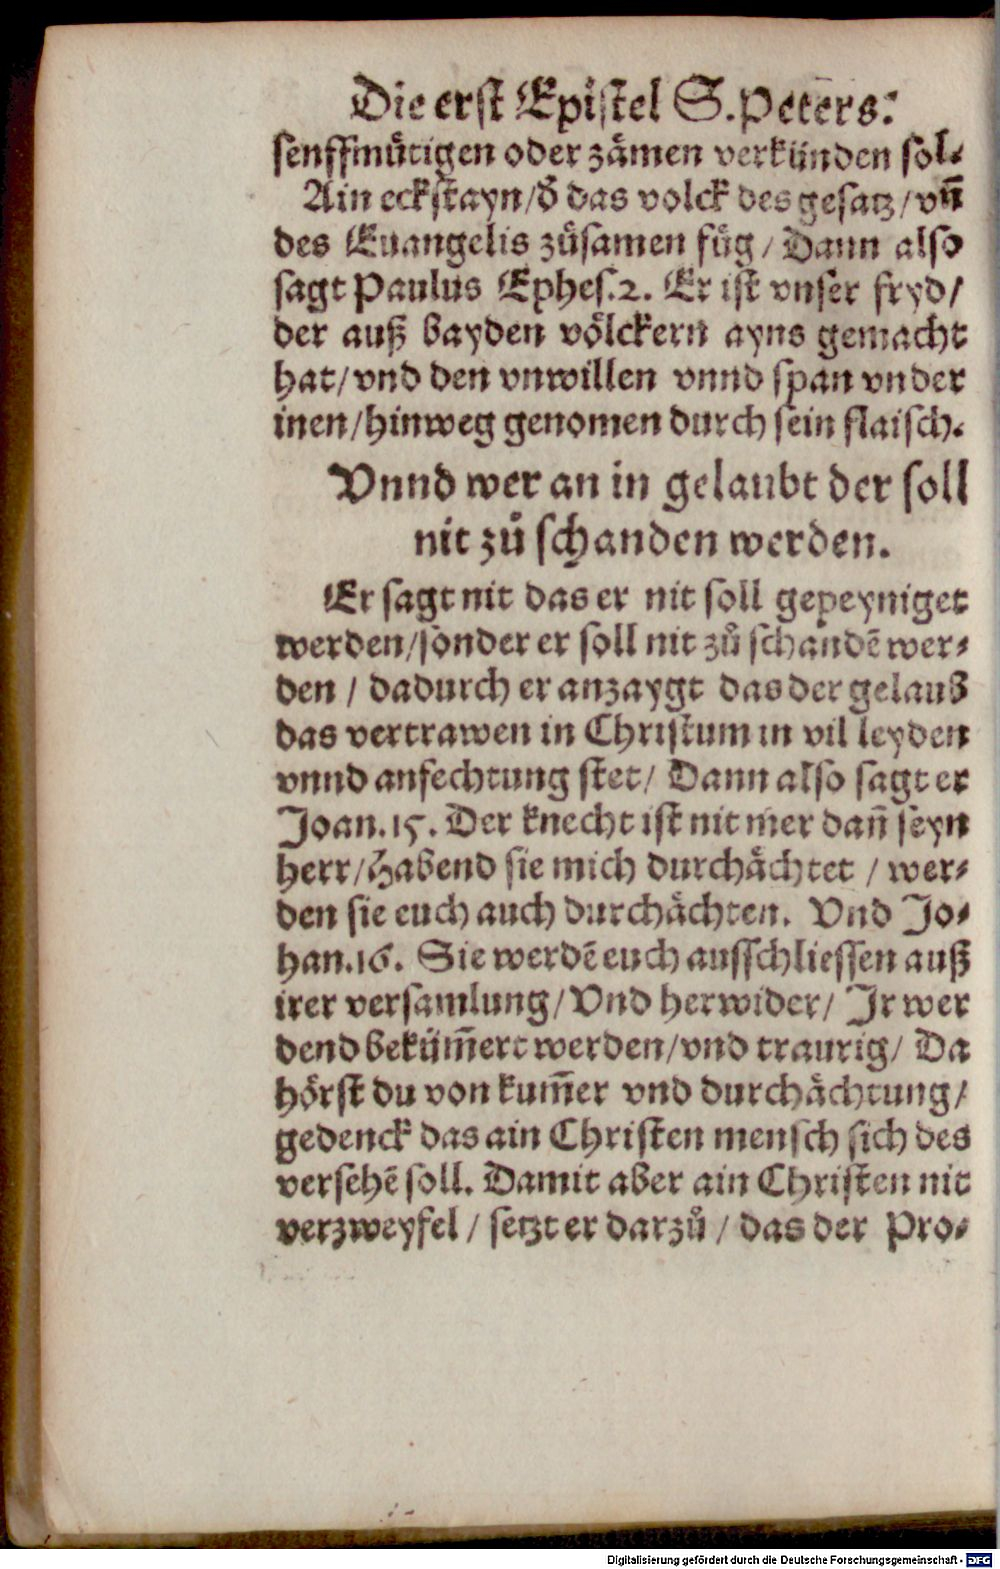 Die erst Epistel S. Peters:
senffmuͤtigen oder zaͤmen verkünden sol⸗
Ain eckstayn/ð das volck des gesatz/vñ
des Euangelis zuͦsamen fuͤg/ Dann also
sagt Paulus Ephes.2. Er ist vnser fryd/
der auß bayden voͤlckern ayns gemacht
hat/vnd den vnwillen vnnd span vnder
inen/hinweg genomen durch sein flaisch.
Vnnd wer an in gelaubt der soll
nit zuͦ schanden werden.
Er sagt nit das er nit soll gepeyniget
werden/sonder er soll nit zuͦ schandẽ wer⸗
den / dadurch er anzaygt das der gelaub
das vertrawen in Christum in vil leyden
vnnd anfechtung stet/ Dann also sagt er
Joan.15. Der knecht ist nit mer dañ seyn
herr/Habend sie mich durchaͤchtet / wer⸗
den sie euch auch durchaͤchten. Vnd Jo⸗
han.16. Sie werdẽ euch ausschliessen auß
irer versamlung/Vnd herwider/ Jr wer
dend beküm̃ert werden/vnd traurig/ Da
hoͤrst du von kum̃er vnd durchaͤchtung/
gedenck das ain Christen mensch sich des
versehẽ soll. Damit aber ain Christen nit
verzweyfel / setzt er darzuͦ / das der Pro⸗
Digitalisierung gefördert durch die Deutsche Forschungsgemeinschaft - DFG